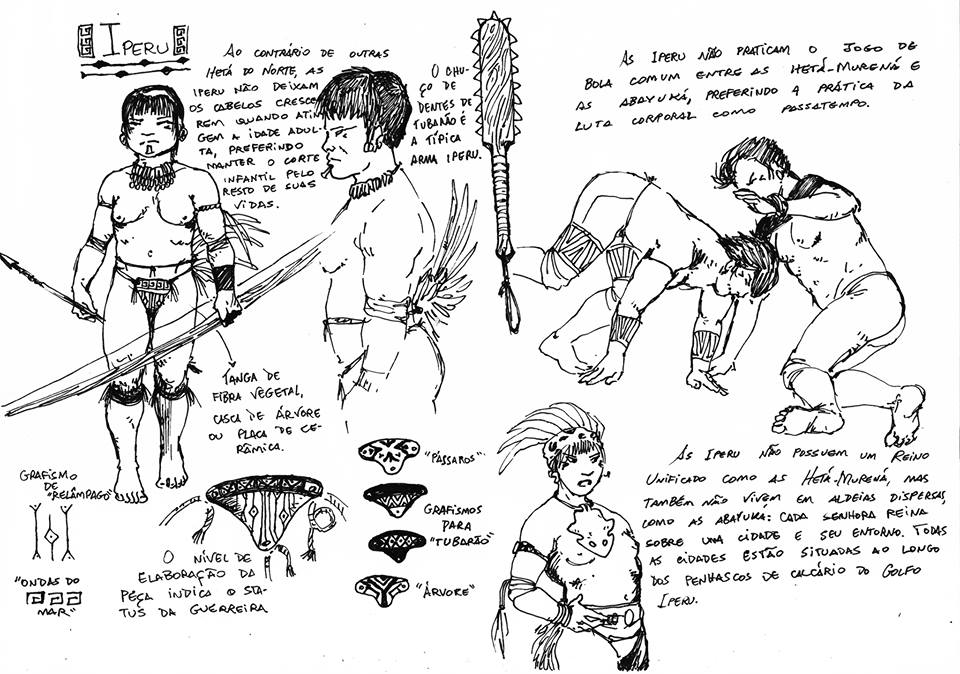 IPERU
AO CONTRÁRIO DE OUTRAS
HETÁ DO NORTE, AS
IPERU NÃO DEIXAM
OS CABELOS CRESCE-
REM QUANDO ATIN-
GEM A IDADE ADUL-
TA, PREFERINDO
MANTER O CORTE
INFANTIL PELO
RESTO DE SUAS
VIDAS.
O CHU-
ÇO DE
DENTES DE
TUBARÃO É
A TÍPICA
ARMA IPERU.
AS IPERU NÃO PRATICAM O JOGO DE
BOLA COMUM ENTRE AS HETÁ-MURENÁ E
AS ABAYUKÁ, PREFERINDO A PRÁTICA DA
LUTA CORPORAL COMO PASSATEMPO.
TANGA DE
FIBRA VEGETAL,
CASCA DE ÁRVORE
OU PLACA DE CE-
RÂMICA.
GRAFISMO
DE
"RELÂMPAGO"
"ONDAS DO
MAR"
O NÍVEL DE
ELABORAÇÃO DA
PEÇA INDICA O STA-
TUS DA GUERREIRA
"PÁSSAROS"
GRAFISMOS
PARA
"TUBARÃO"
"ÁRVORE"
AS IPERU NÃO POSSUEM UM REINO
UNIFICADO COMO AS HETÁ-MURENÁ, MAS
TAMBÉM NÃO VIVEM EM ALDEIAS DISPERSAS,
COMO AS ABAYUKÁ: CADA SENHORA REINA
SOBRE UMA CIDADE E SEU ENTORNO. TODAS
AS CIDADES ESTÃO SITUADAS AO LONGO
DOS PENHASCOS DE CALCÁRIO DO GOLFO
IPERU.